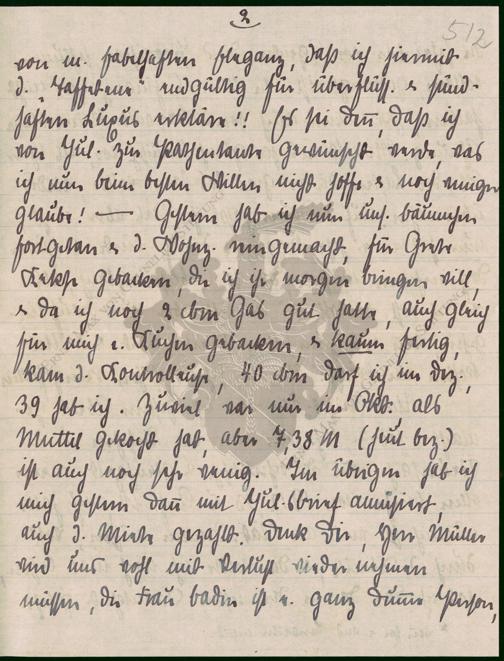 2
512
von m. fabelhaften Eleganz, daß ich hiermit
d. "Taffetene" endgültig für überflüss. & sünd-
haften Luxus erkläre!! Es sei denn, daß ich
von Jul. zur Patentante gewünscht werde, was
ich nun beim besten Willen nicht hoffe & noch weniger
glaube! — Gestern hab ich nun uns. bäumchen
fortgetan & d. Wohnz. reingemacht, für Grete
Kekse gebacken, die ich ihr morgen bringen will,
& da ich noch 2 cbm Gas gut hatte, auch gleich
für mich e. Kuchen gebacken, & kaum fertig,
kam d. Kontrolleuse, 40 cbm darf ich im Dez.,
39 hab ich. Zuviel war nur im Okt. als
Muttel gekocht hat, aber 7,38 M (heut bez.)
ist auch noch sehr wenig. Im übrigen hab ich
mich gestern dann mit Jul.sbrief amüsiert,
auch d. Miete gezahlt. Denk Dir, Herr Müller
wird uns wohl mit Verlust wieder nehmen
müssen, die Frau badin ist e. ganz dumme Person,